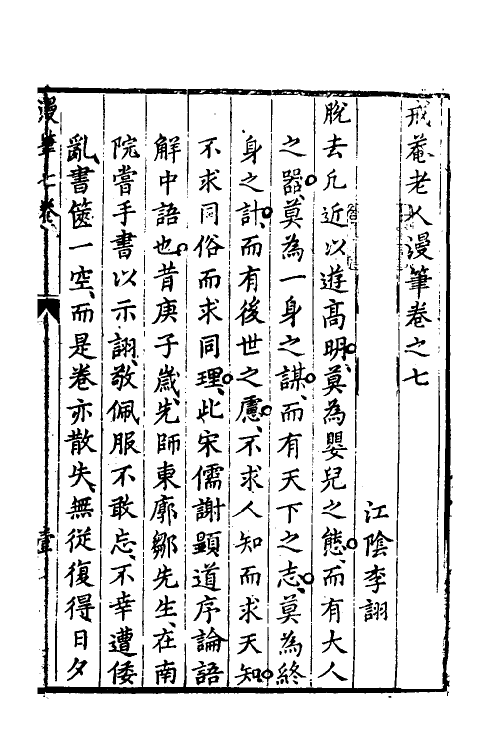 戒菴老人漫筆卷之七
江陰李詡
脫去凢近以遊高明莫為嬰兒之態而有大人
之器莫為一身之謀而有天下之志莫為終
身之計而有後世之慮不求人知而求天知
不求同俗而求同理此宋儒謝顯道序論語
解中語也昔庚子歲先師東廓鄒先生在南
院嘗手書以示詡敬佩服不敢忘不幸遭倭
亂書篋一空而是卷亦散失無從復得日夕
漫筆七卷
壹